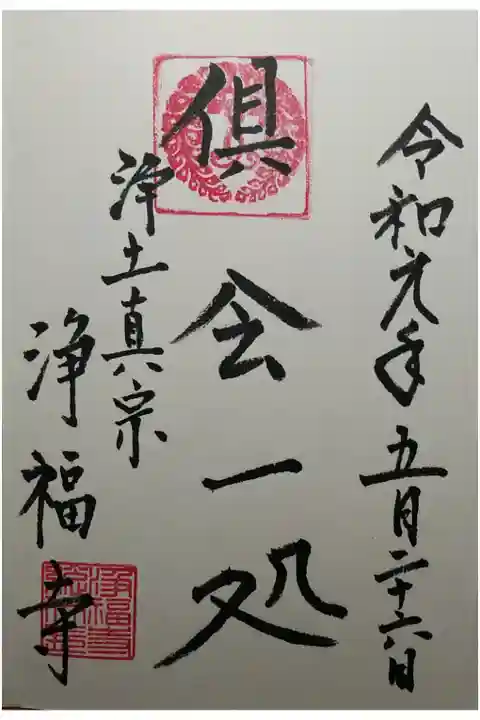 令和元年五月二十六日
倶会一処
浄土真宗
浄福寺